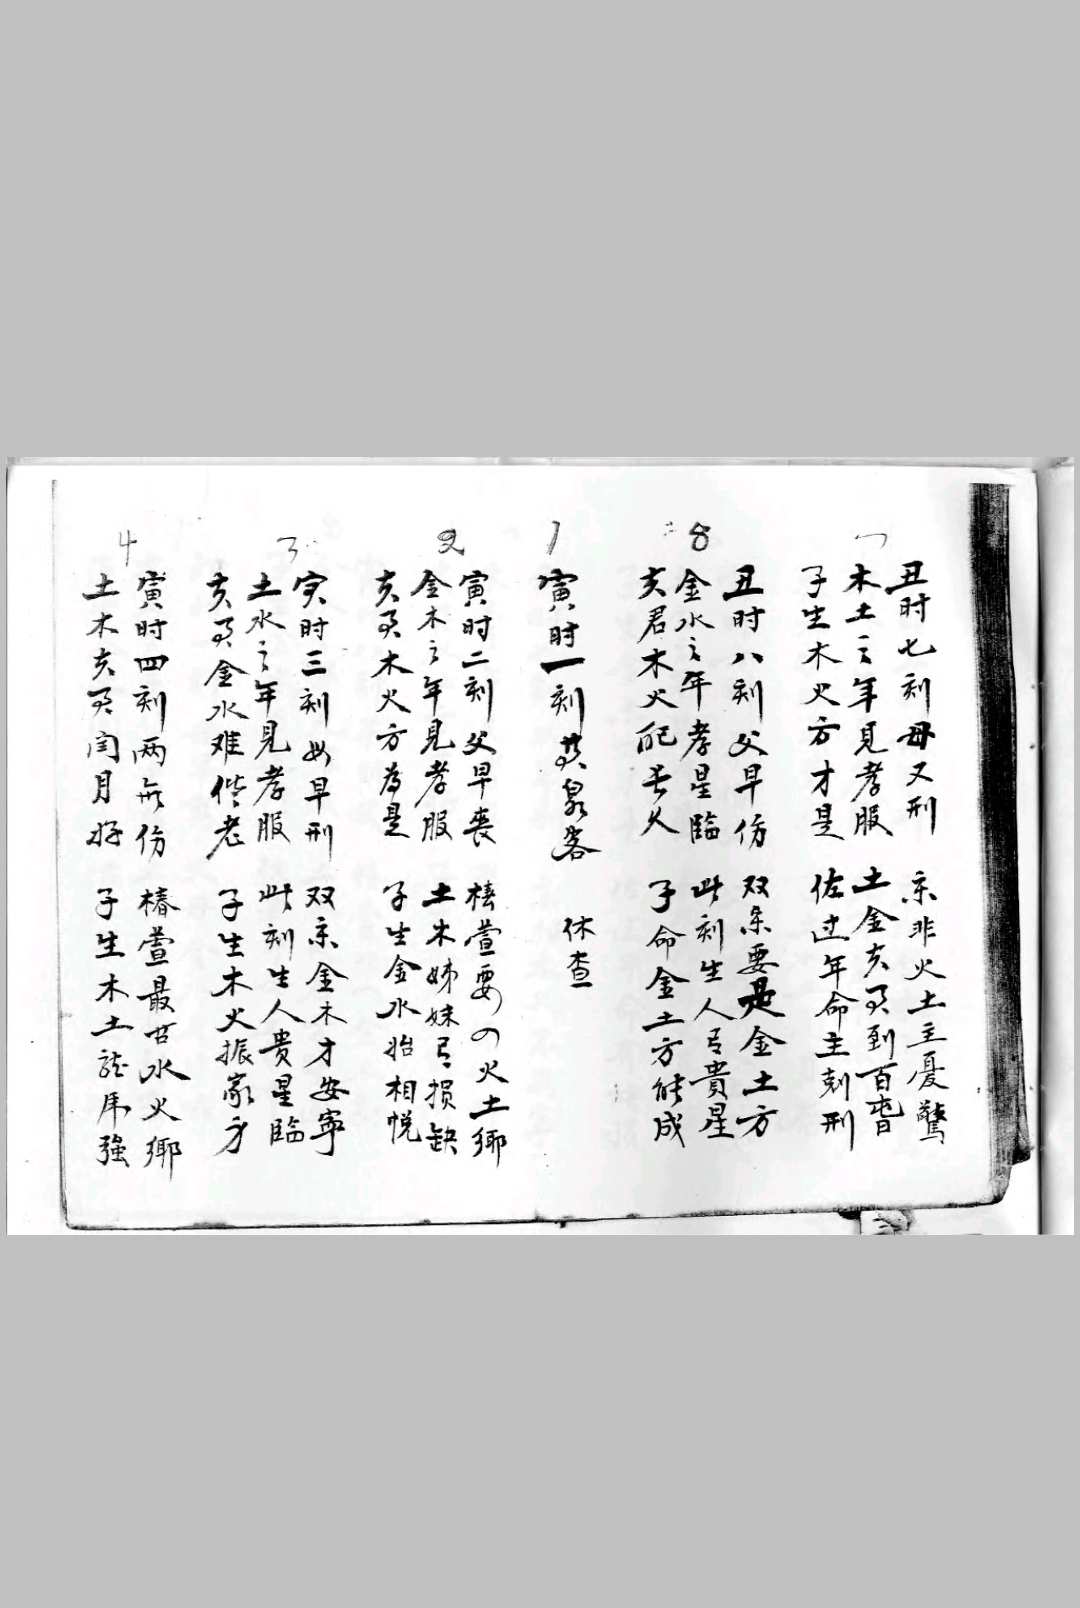 7
丑时七刻母又刑 亲非火土主憂驚
木土之年見孝服 土金夫君到百耆
子生木火方才是 佐过年命主剋刑
8
丑时八刻父早伤 双亲要是金土方
金水之年孝星臨 此刻生人占貴星
夫君木火配 子命金土方能成
1
寅时一刻黄泉客 休查
2
寅时二刻父早丧 椿萱要火土鄉
金木之年見孝服 土木姊妹占损缺
夫君木火方為是 子生金水始相悦
3
寅时三刻母早刑 双亲金木才安寧
土水之年見孝服 此刻生人贵星臨
夫君金水难偕老 子生木火振家
4
寅时四刻两无伤 椿萱最古水火鄉
土木夫君闰月好 子生木土龙虎强